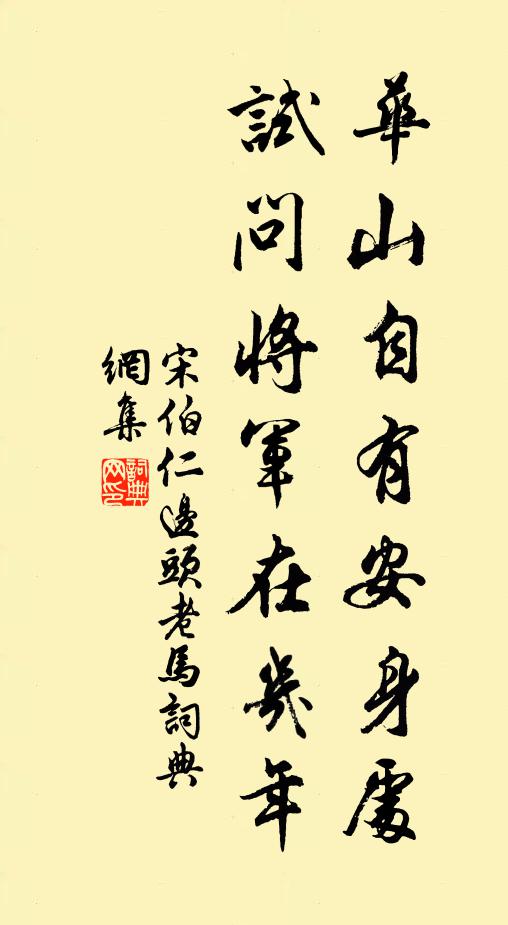 華山自有安身處
試問將軍在幾年
宋伯仁邊頭老馬詞典
網集
詞典网印